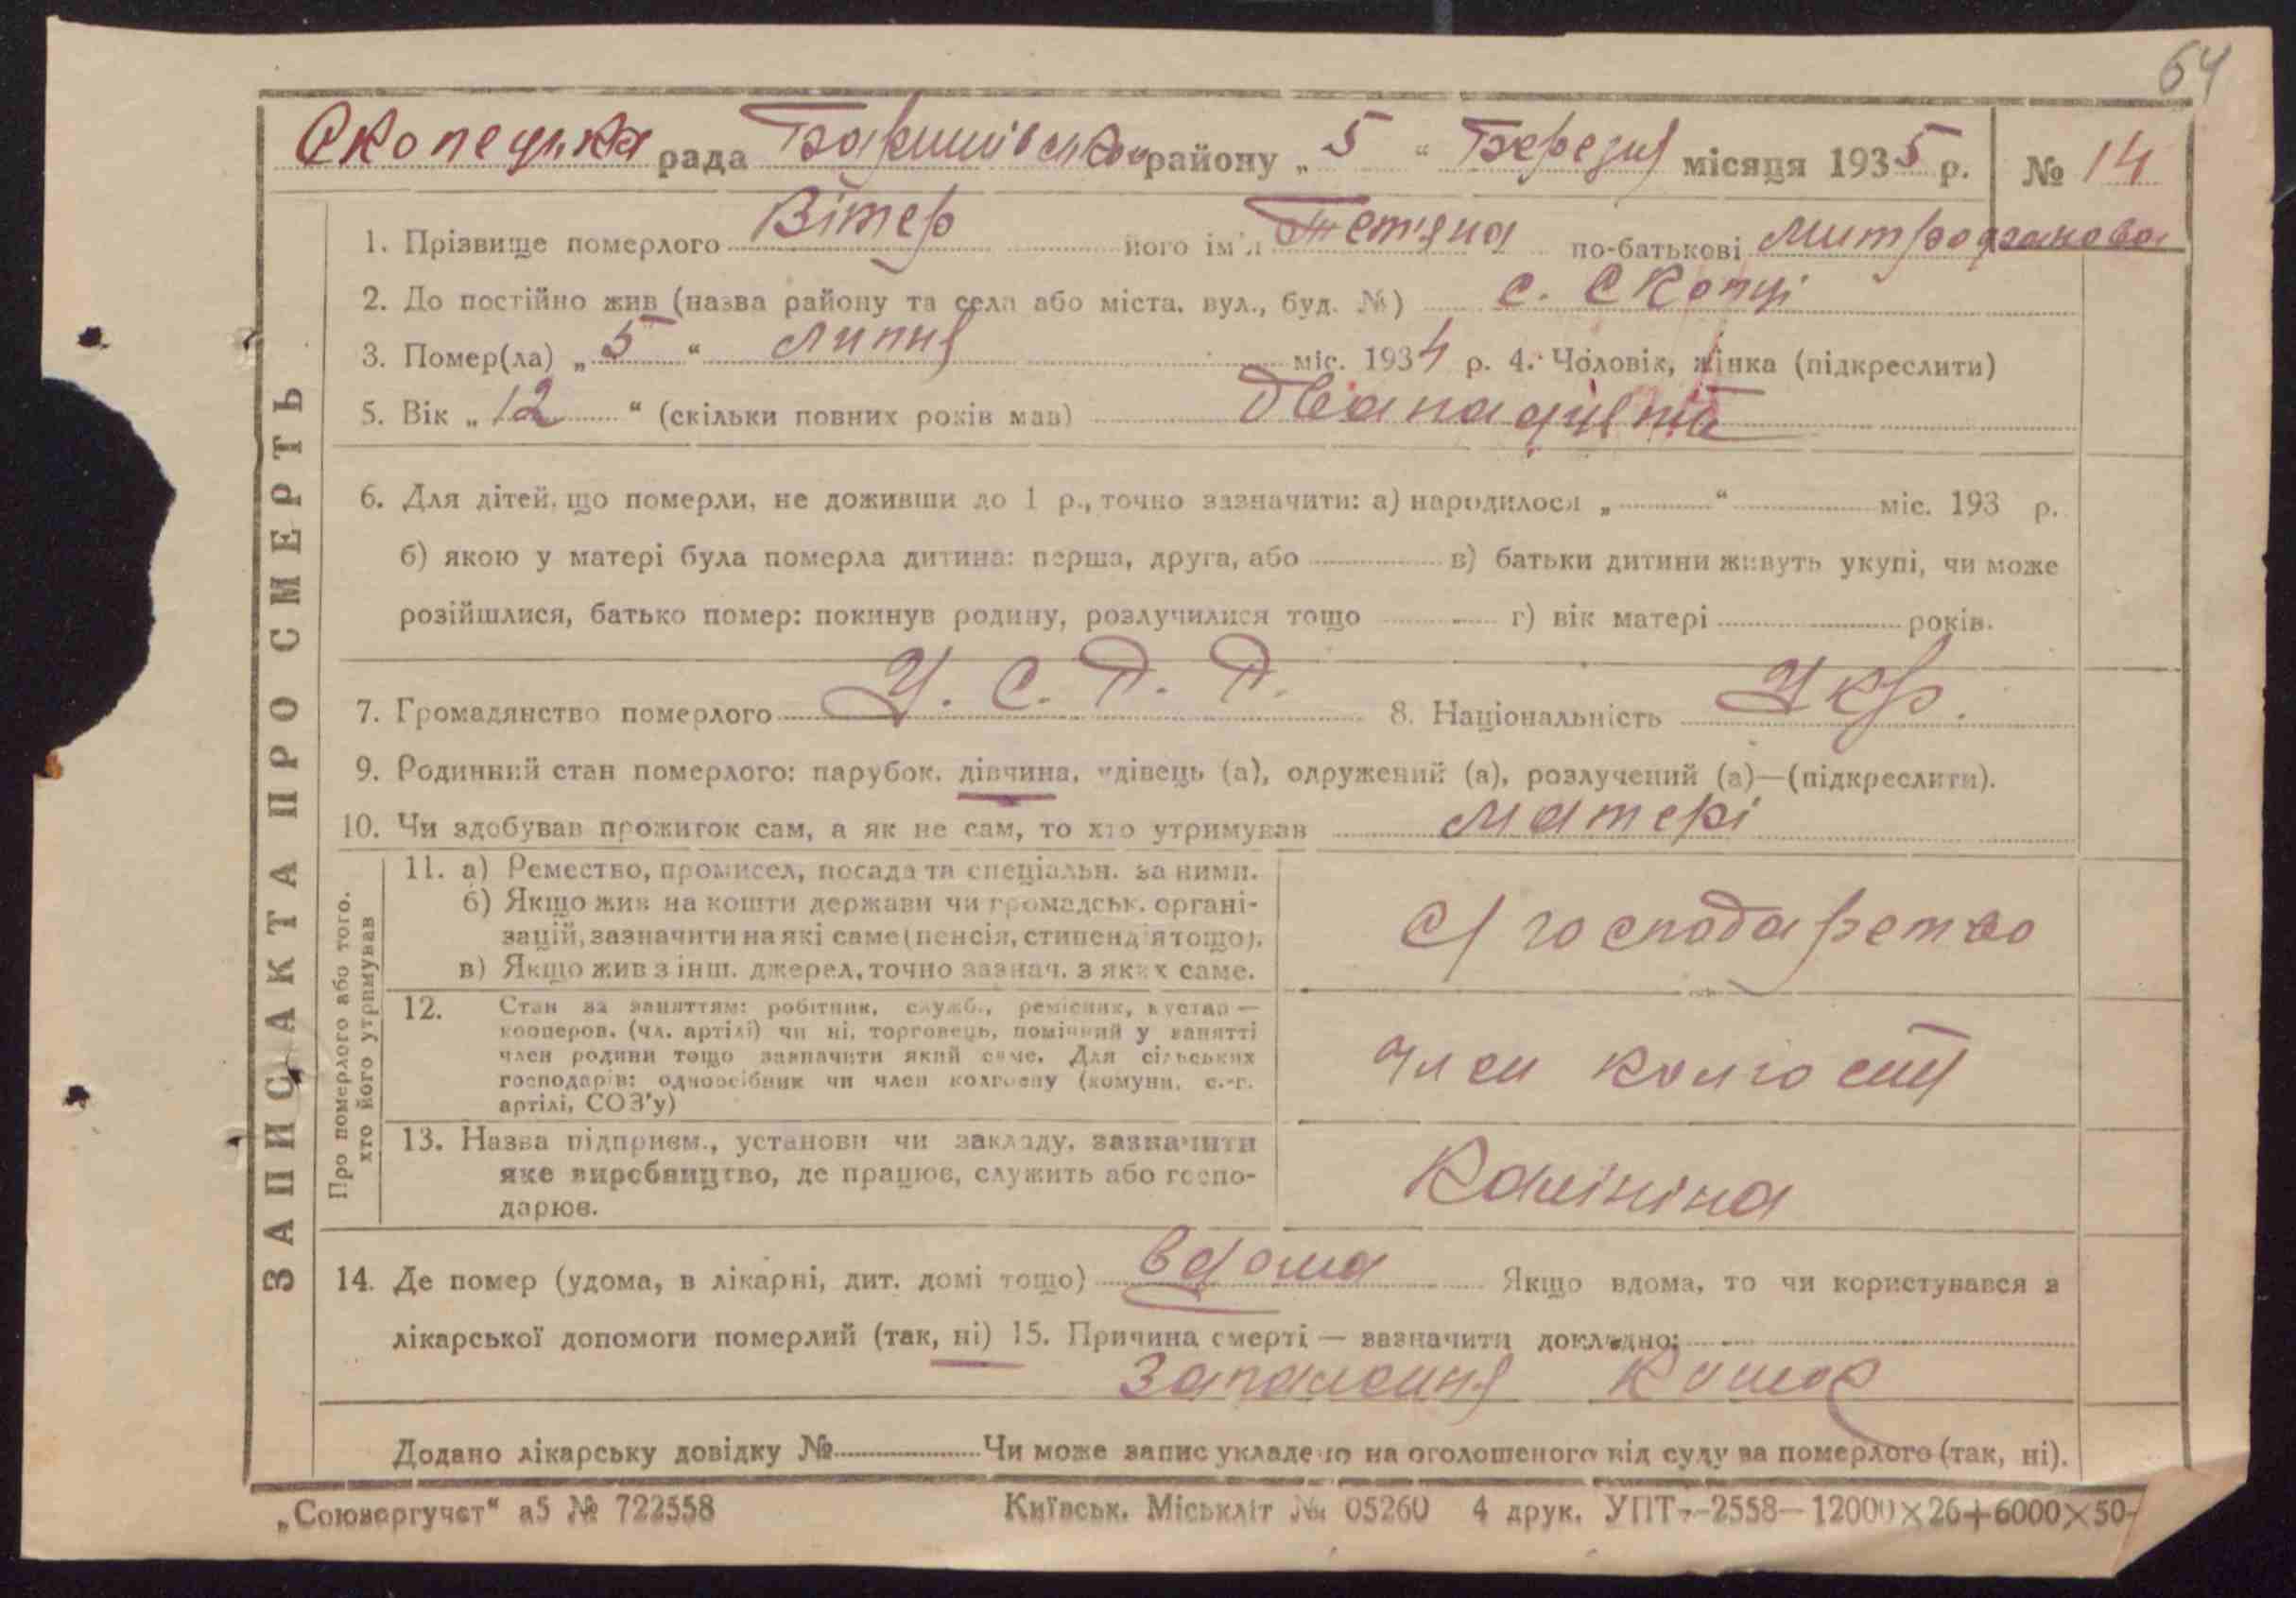 64
Скопецька рада Баришівського району „5“ Березня місяця 1935 р. № 14
ЗАПИС АКТА ПРО СМЕРТЬ
1. Прізвище померлого Вітер його ім'я Тетяна по-батькові
2. До постійно жив (назва району та села або міста, вул., буд. №) с. Скопці
3. Помер(ла) „5“ липня міс. 1934 р. 4. Чоловік, жінка (підкреслити)
5. Вік „12“ (скільки повних років мав) Дванадцять
6. Для дітей, що померли, не доживши до 1 р., точно зазначити: а) народилося „ “ міс. 193 р.
б) якою у матері була померла дитина: перша, друга, або в) батьки дитини живуть укупі, чи може
розійшлися, батько помер: покинув родину, розлучилися тощо г) вік матері років.
7. Громадянство померлого У. С. Р. Р. 8. Національність Укр.
9. Родинний стан померлого: парубок, дівчина, удівець (а), одружений (а), розлучений (а)—(підкреслити).
10. Чи здобував прожиток сам, а як не сам, то хто утримував матері
Про померлого або того,
хто його утримував
11. а) Ремество, промисел, посада та спеціальн. за ними.
б) Якщо жив на кошти держави чи громадськ. органі-
зацій, зазначити на які саме (пенсія, стипендія тощо).
в) Якщо жив з інш. джерел, точно зазнач. з яких саме.
С/господарство
12. Стан за заняттям: робітник, служб., ремісник, кустар —
кооперов. (чл. артілі) чи ні, торговець, помічний у занятті
член родини тощо зазначити який саме. Для сільських
господарів: одноосібник чи член колгоспу (комуни, с.-г.
артілі, СОЗ'у)
член колгоспу
13. Назва підприєм., установи чи закладу, зазначити
яке виробництво, де працює, служить або госпо-
дарює.
Калініна
14. Де помер (удома, в лікарні, дит. домі тощо) вдома Якщо вдома, то чи користувався з
лікарської допомоги померлий (так, ні) 15. Причина смерті — зазначити докладно:
Запалення
Додано лікарську довідку № Чи може запис укладено на оголошеного від суду за померлого (так, ні).
„Союзоргучет“ а5 № 722558 Київськ. Міськліт № 05260 4 друк. УПТ—2558—12000×26+6000×50-